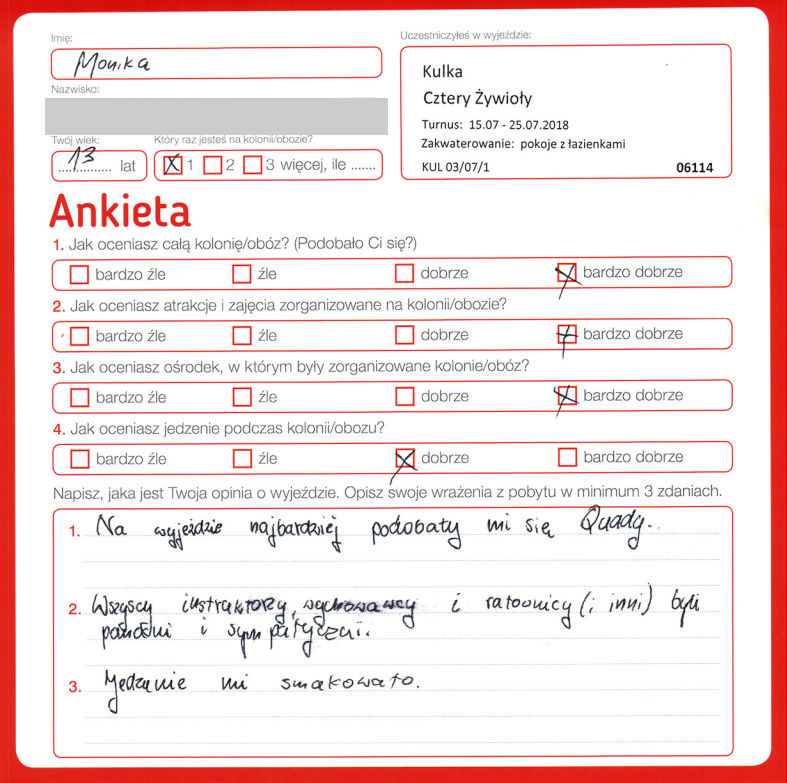 Imię:
Monika
Nazwisko:
Twój wiek:
13 lat
Który raz jesteś na kolonii/obozie?
X 1 2 3 więcej, ile .......
Uczestniczyłeś w wyjeździe:
Kulka
Cztery Żywioły
Turnus: 15.07 - 25.07.2018
Zakwaterowanie: pokoje z łazienkami
KUL 03/07/1 06114
Ankieta
1. Jak oceniasz całą kolonię/obóz? (Podobało Ci się?)
bardzo źle źle dobrze X bardzo dobrze
2. Jak oceniasz atrakcje i zajęcia zorganizowane na kolonii/obozie?
bardzo źle źle dobrze X bardzo dobrze
3. Jak oceniasz ośrodek, w którym były zorganizowane kolonie/obóz?
bardzo źle źle dobrze X bardzo dobrze
4. Jak oceniasz jedzenie podczas kolonii/obozu?
bardzo źle źle X dobrze bardzo dobrze
Napisz, jaka jest Twoja opinia o wyjeździe. Opisz swoje wrażenia z pobytu w minimum 3 zdaniach.
1. Na wyjeździe najbardziej podobały mi się Quady.
2. Wszyscy instruktorzy, wychowawcy i ratownicy (i inni) byli
i sympatyczni.
3. Jedzenie mi smakowało.